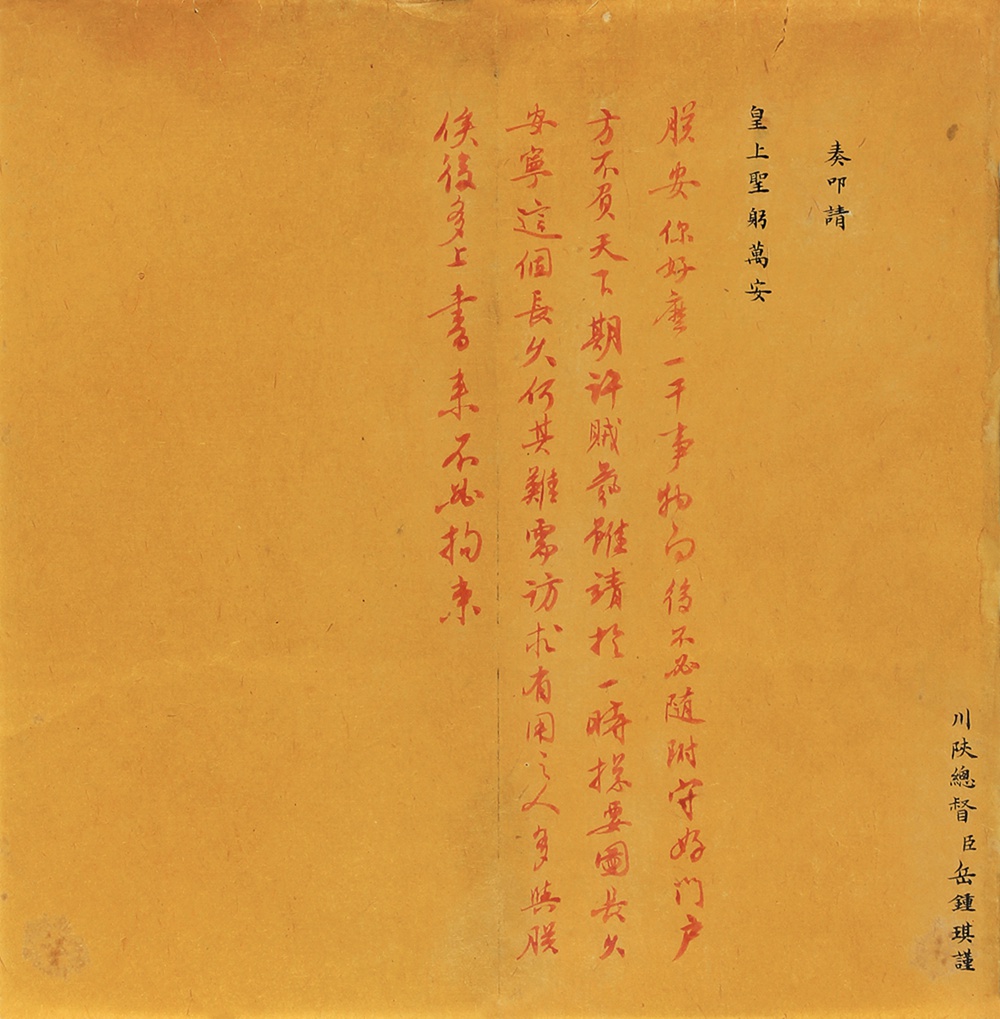 川陝總督臣岳鍾琪謹
奏叩請
皇上聖躬萬安
朕安你好麼一干事物向後不必隨附守好門戶
方不負天下期許賊勢雖靖於一時揔要圖長久
安寧這個長久何其難需訪求有用之人多與朕
俟後多上書來不必拘束